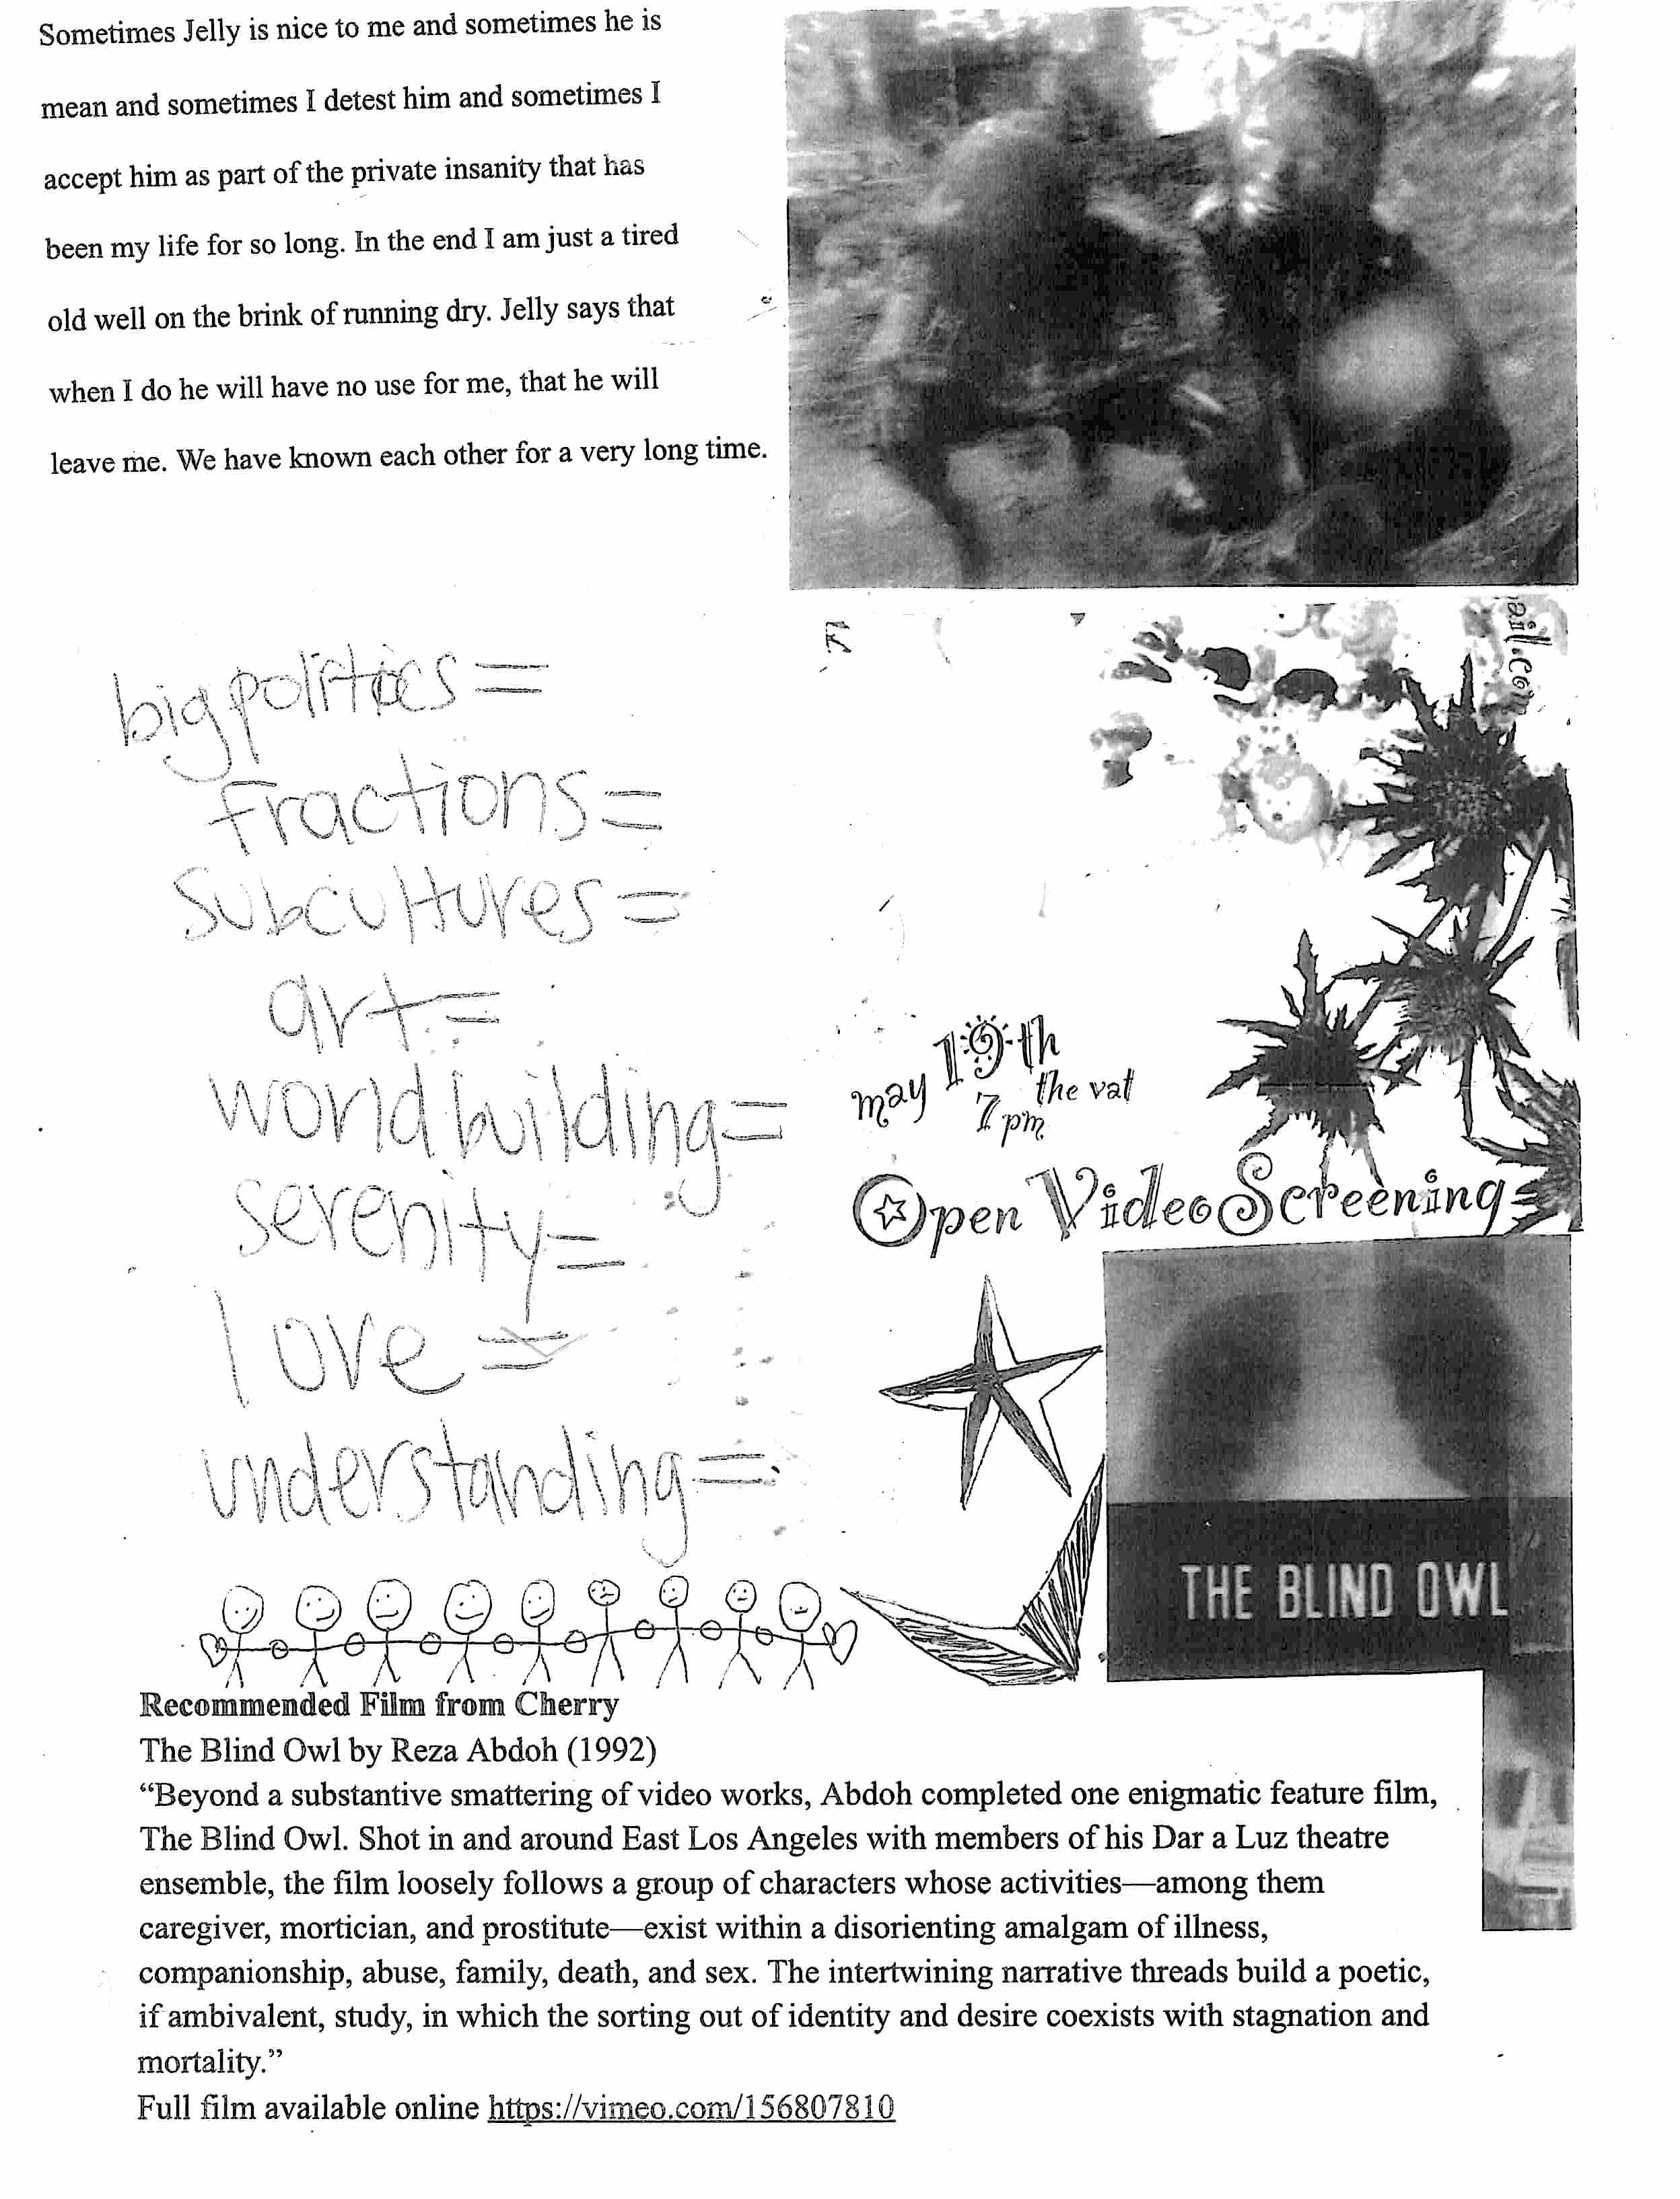 Sometimes Jelly is nice to me and sometimes he is
mean and sometimes I detest him and sometimes I
accept him as part of the private insanity that has
been my life for so long. In the end I am just a tired
old well on the brink of running dry. Jelly says that
when I do he will have no use for me, that he will
leave me. We have known each other for a very long time.
big politics =
fractions =
subcultures =
art =
world building =
serenity =
love =
understanding =
ail.com
may 19th
the vat
7pm
Open Video Screening
THE BLIND OWL
Recommended Film from Cherry
The Blind Owl by Reza Abdoh (1992)
“Beyond a substantive smattering of video works, Abdoh completed one enigmatic feature film,
The Blind Owl. Shot in and around East Los Angeles with members of his Dar a Luz theatre
ensemble, the film loosely follows a group of characters whose activities—among them
caregiver, mortician, and prostitute—exist within a disorienting amalgam of illness,
companionship, abuse, family, death, and sex. The intertwining narrative threads build a poetic,
if ambivalent, study, in which the sorting out of identity and desire coexists with stagnation and
mortality.”
Full film available online https://vimeo.com/156807810